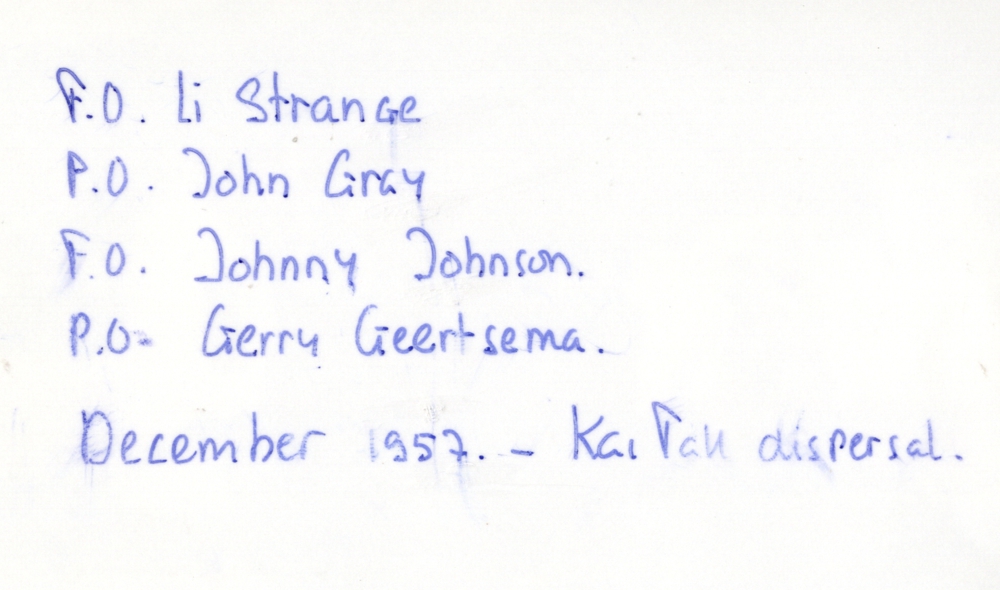 F.O. Li Strange
P.O. John Gray
F.O. Johnny Johnson.
P.O- Gerry Geertsema.
December 1957. - Kai Tak dispersal.